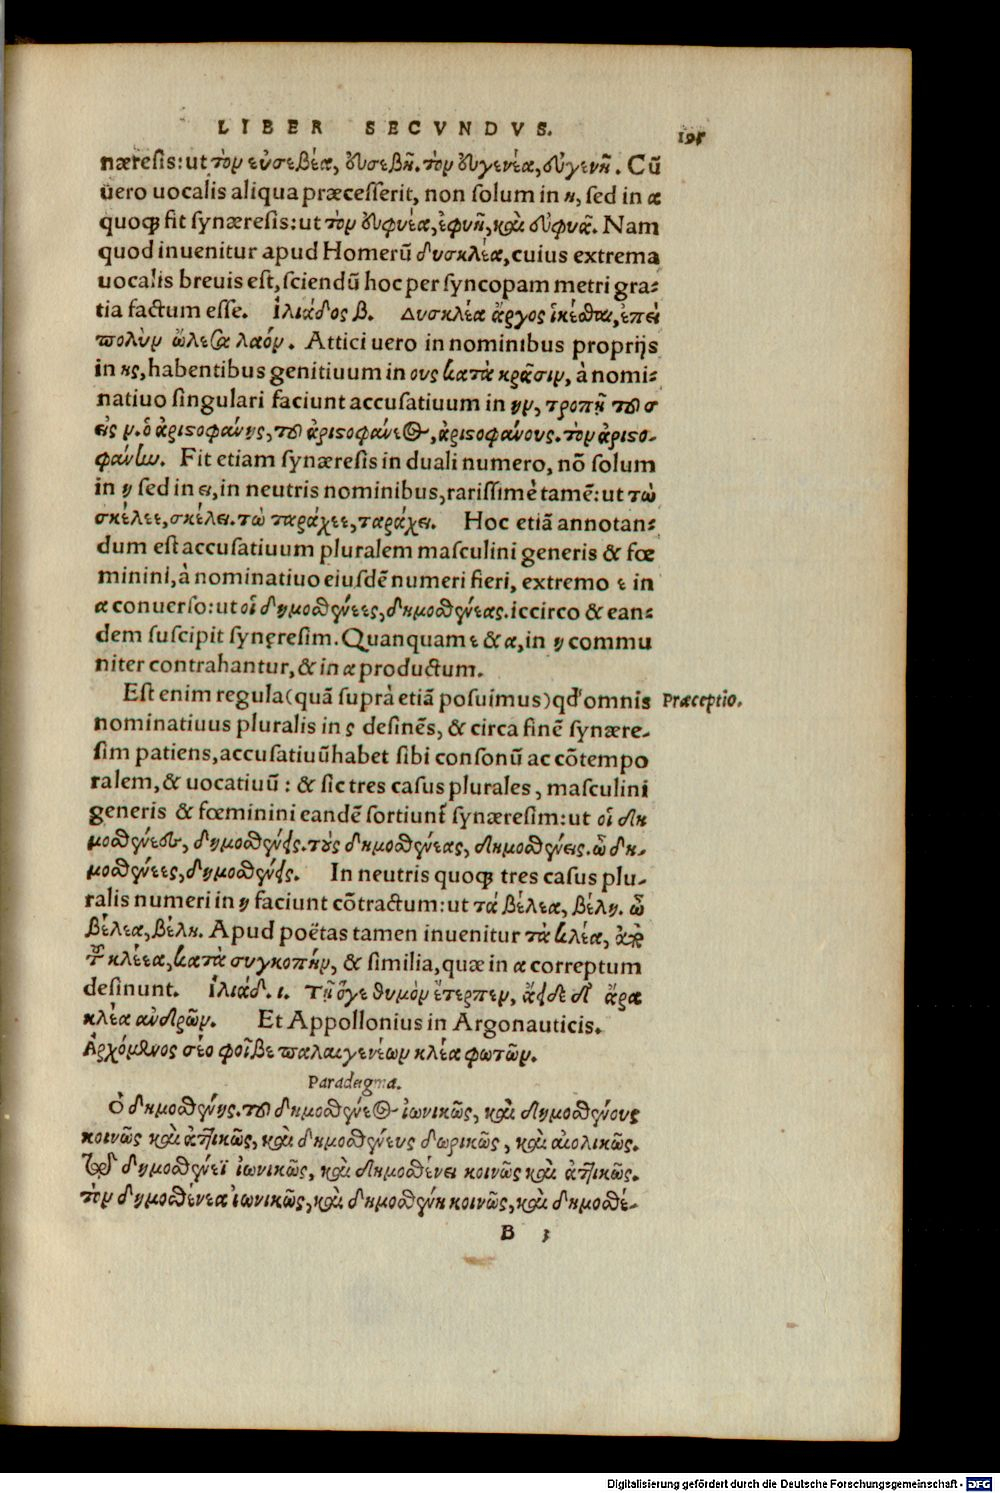 LIBER SECVNDVS. 195
næresis: ut τὸν εὐσεβέα, εὐσεβῆ. τὸν εὐγενέα, εὐγενῆ. Cũ
uero uocalis aliqua præcesserit, non solum in η, sed in α
quoq; fit synæresis: ut τὸν εὐφυέα, εὐφυῆ, καὶ εὐφυᾶ. Nam
quod inuenitur apud Homerũ δυσκλέα, cuius extrema
uocalis breuis est, sciendũ hoc per syncopam metri gra-
tia factum esse. Ἰλιάδος β. Δυσκλέα ἄργος ἱκέσθαι, ἐπεὶ
πολὺν ὤλεσα λαόν. Attici uero in nominibus proprijs
in ης, habentibus genitiuum in ους κατὰ κρᾶσιν, à nomi-
natiuo singulari faciunt accusatiuum in ην, τροπῇ τοῦ σ
εἰς ν. ὁ ἀριστοφάνης, τοῦ ἀριστοφάνεος, ἀριστοφάνους. τὸν ἀριστο-
φάνην. Fit etiam synæresis in duali numero, nõ solum
in η sed in ει, in neutris nominibus, rarissimè tamẽ: ut τὼ
σκέλεε, σκέλει. τὼ ταράχεε, ταράχει. Hoc etiã annotan-
dum est accusatiuum pluralem masculini generis & fœ
minini, à nominatiuo eiusdẽ numeri fieri, extremo ε in
α conuerso: ut οἱ δημοσθένεες, δημοσθένεας. iccirco & ean-
dem suscipit synęresim. Quanquam ε & α, in η commu
niter contrahantur, & in α productum.
Est enim regula (quã suprà etiã posuimus) qđ omnis Præceptio.
nominatiuus pluralis in ς desinẽs, & circa finẽ synære-
sim patiens, accusatiuũ habet sibi consonũ ac cõtempo
ralem, & uocatiuũ: & sic tres casus plurales, masculini
generis & fœminini eandẽ sortiunt̃ synæresim: ut οἱ δη
μοσθένεες, δημοσθένεις. τοὺς δημοσθένεας, δημοσθένεις. ὦ δη-
μοσθένεες, δημοσθένεις. In neutris quoq; tres casus plu-
ralis numeri in η faciunt cõtractum: ut τά βέλεα, βέλη. ὦ
βέλεα, βέλη. Apud poëtas tamen inuenitur τὰ κλέα, ἀπὸ
τοῦ κλέεα, κατὰ συγκοπήν, & similia, quæ in α correptum
desinunt. Ἰλιάδ. ι. Τῇ ὅγε θυμὸν ἔτερπεν, ἄειδε δʼ ἄρα
κλέα ἀνδρῶν. Et Appollonius in Argonauticis.
Ἀρχόμενος σέο φοῖβε παλαιγενέων κλέα φωτῶν.
Paradigma.
Ὁ δημοσθένης. τοῦ δημοσθένεος ἰωνικῶς, καὶ δημοσθένους
κοινῶς καὶ ἀττικῶς, καὶ δημοσθένευς δωρικῶς, καὶ αἰολικῶς.
Τῷ δημοσθένεϊ ἰωνικῶς, καὶ δημοσθένει κοινῶς καὶ ἀττικῶς.
τὸν δημοσθένεα ἰωνικῶς, καὶ δημοσθένη κοινῶς, καὶ δημοσθέ-
B 3
Digitalisierung gefördert durch die Deutsche Forschungsgemeinschaft - DFG